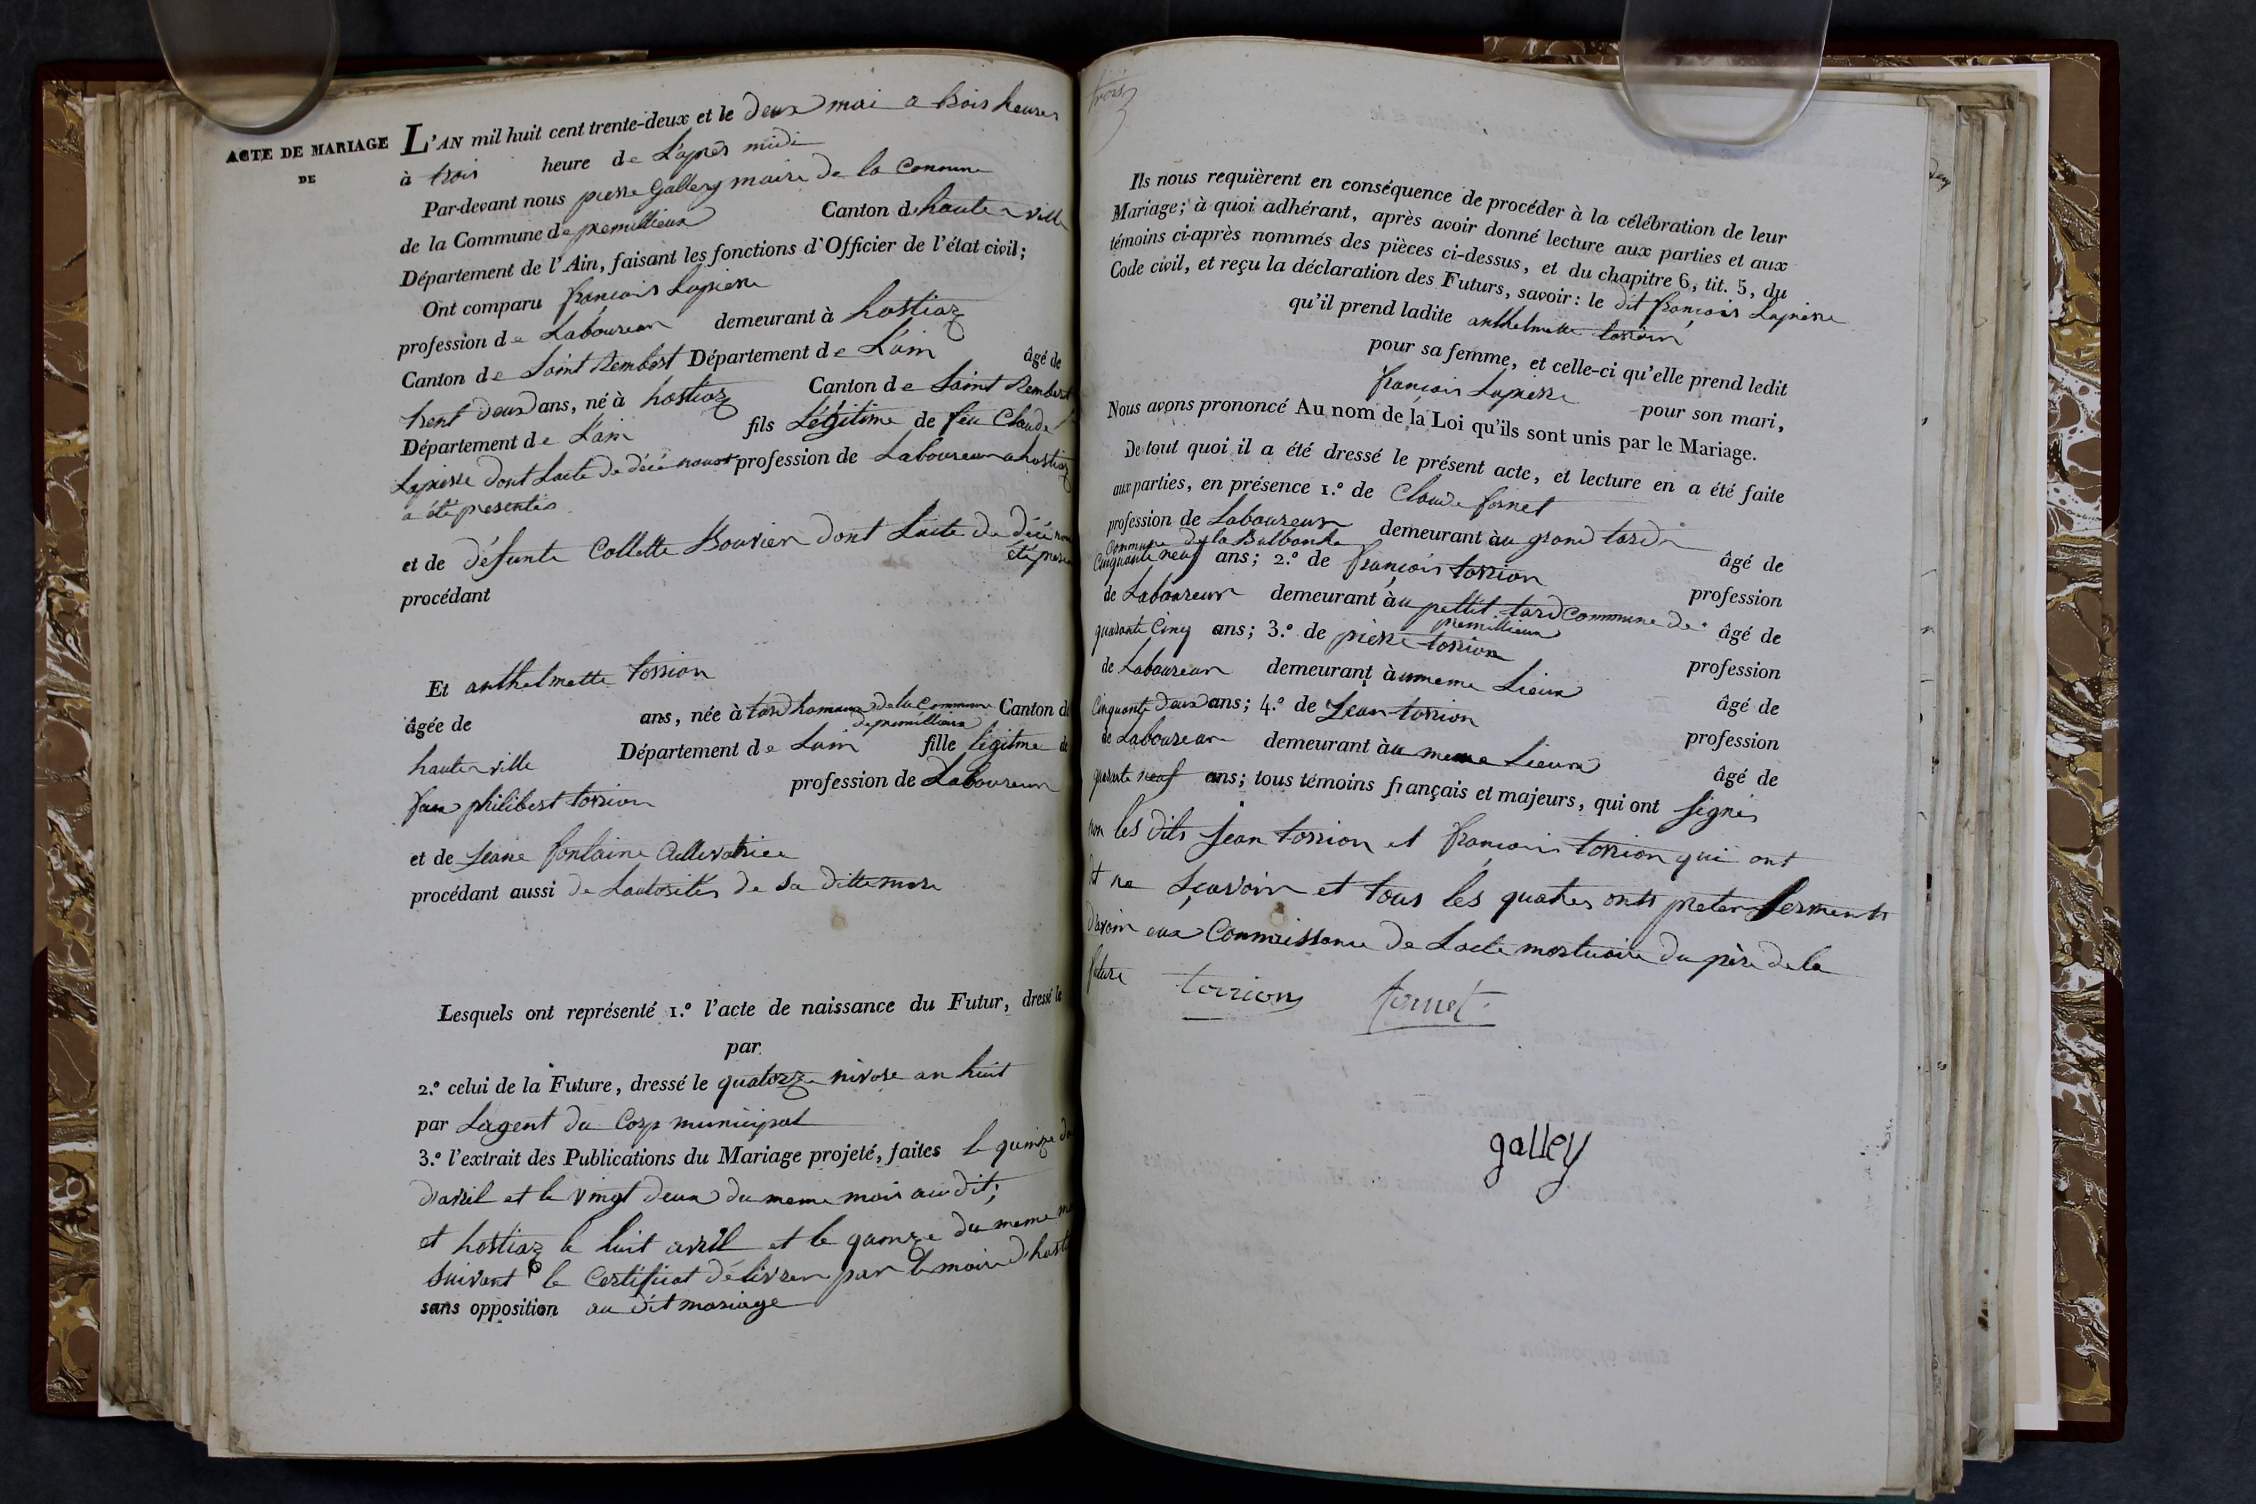 ACTE DE MARIAGE
DE
L'AN mil huit cent trente-deux et le deux mai a trois heures
à trois heure de L'après midi
Par-devant nous pierre Galley maire de la Commune
de la Commune de premillieux Canton de hauteville
Département de l'Ain, faisant les fonctions d'Officier de l'état civil;
Ont comparu françois Lapierre
profession de Laboureur demeurant à hostiaz
Canton de Saint Rembert Département de L'ain âgé de
trent deux ans, né à hostiaz Canton de Saint Rembert
Département de L'ain fils Légitime de feu Claude
Lapierre dont Lacte de décé nous profession de Laboureur a hostiaz
a été presentés
et de défunte Collette Bouvier dont Lacte de décé nous
été
procédant
Et anthelmette torrion
âgée de ans, née à tard de la Commune Canton de
de premillieux
hauteville Département de Lain fille légitime de
feu philibert torrion profession de Laboureur
et de Jeane fontaine Cultivatrice
procédant aussi de Lautorités de Sa ditte mere
Lesquels ont représenté 1.º l'acte de naissance du Futur, dressé le
par
2.º celui de la Future, dressé le quatorze nivose an huit
par Lagent du Corp municipal
3.º l'extrait des Publications du Mariage projeté, faites le quinze
d'avril et le vingt deux du meme mois audit;
et hostiaz le huit avril et le quinze du meme
Suivant le Certificat délivrer par le maire d'hostiaz
sans opposition au dit mariage
trois
Ils nous requièrent en conséquence de procéder à la célébration de leur
Mariage; à quoi adhérant, après avoir donné lecture aux parties et aux
témoins ci-après nommés des pièces ci-dessus, et du chapitre 6, tit. 5, du
Code civil, et reçu la déclaration des Futurs, savoir: le dit françois Lapierre
qu'il prend ladite anthelmette torrion
pour sa femme, et celle-ci qu'elle prend ledit
françois Lapierre pour son mari,
Nous avons prononcé Au nom de la Loi qu'ils sont unis par le Mariage.
De tout quoi il a été dressé le présent acte, et lecture en a été faite
aux parties, en présence 1.º de Claude fornet
profession de Laboureur demeurant àu grand tard
Commune de la Balbanche âgé de
Cinquante neuf ans; 2.º de françois torrion profession
de Laboureur demeurant àu pettit tard Commune de
premillieux âgé de
quarante Cinq ans; 3.º de pièrre torrion profession
de Laboureur demeurant àu meme Lieux âgé de
Cinquante deux ans; 4.º de Jean torrion profession
de Laboureur demeurant àu meme Lieux âgé de
quarante neuf ans; tous témoins français et majeurs, qui ont signés
non les dits Jean torrion et françois torrion qui ont
dit ne Sçavoir et tous les quatres onts preter Serments
d'avoir eux Connaissance de Lacte mortuaire du père de la
future torrion fornet
galley